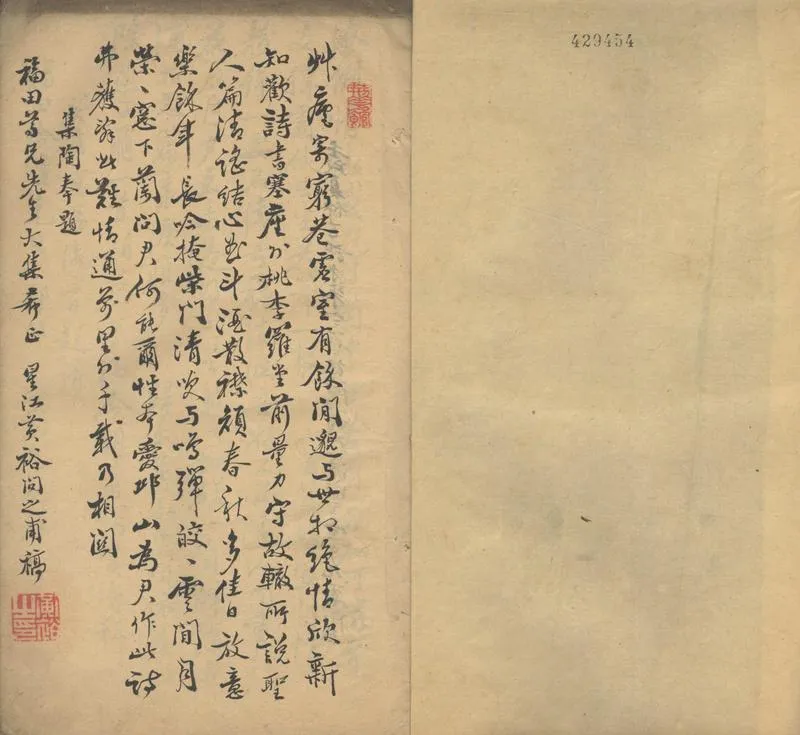 艸廬寄窮巷虛室有餘閒邈与世相絕情欣新
知歡詩書塞座外桃李羅堂前量力守故轍所說聖
人篇清謠結心曲斗酒散襟顏春秋多佳日放意
樂餘年長吟掩柴門清吹与鳴彈皎〻雲間月
榮〻窓下蘭問君何能爾性本愛邱山為君作此詩
弗獲辭此難情通萬里外千載乃相關
集陶奉題
福田尊兄先生大集希正 星江黃裕問之甫稿
429454